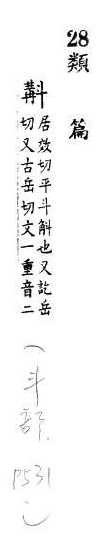 28
類篇
斠
居效切平斗斛也又訖岳
切又古岳切文一重音二
(斗部. P531)